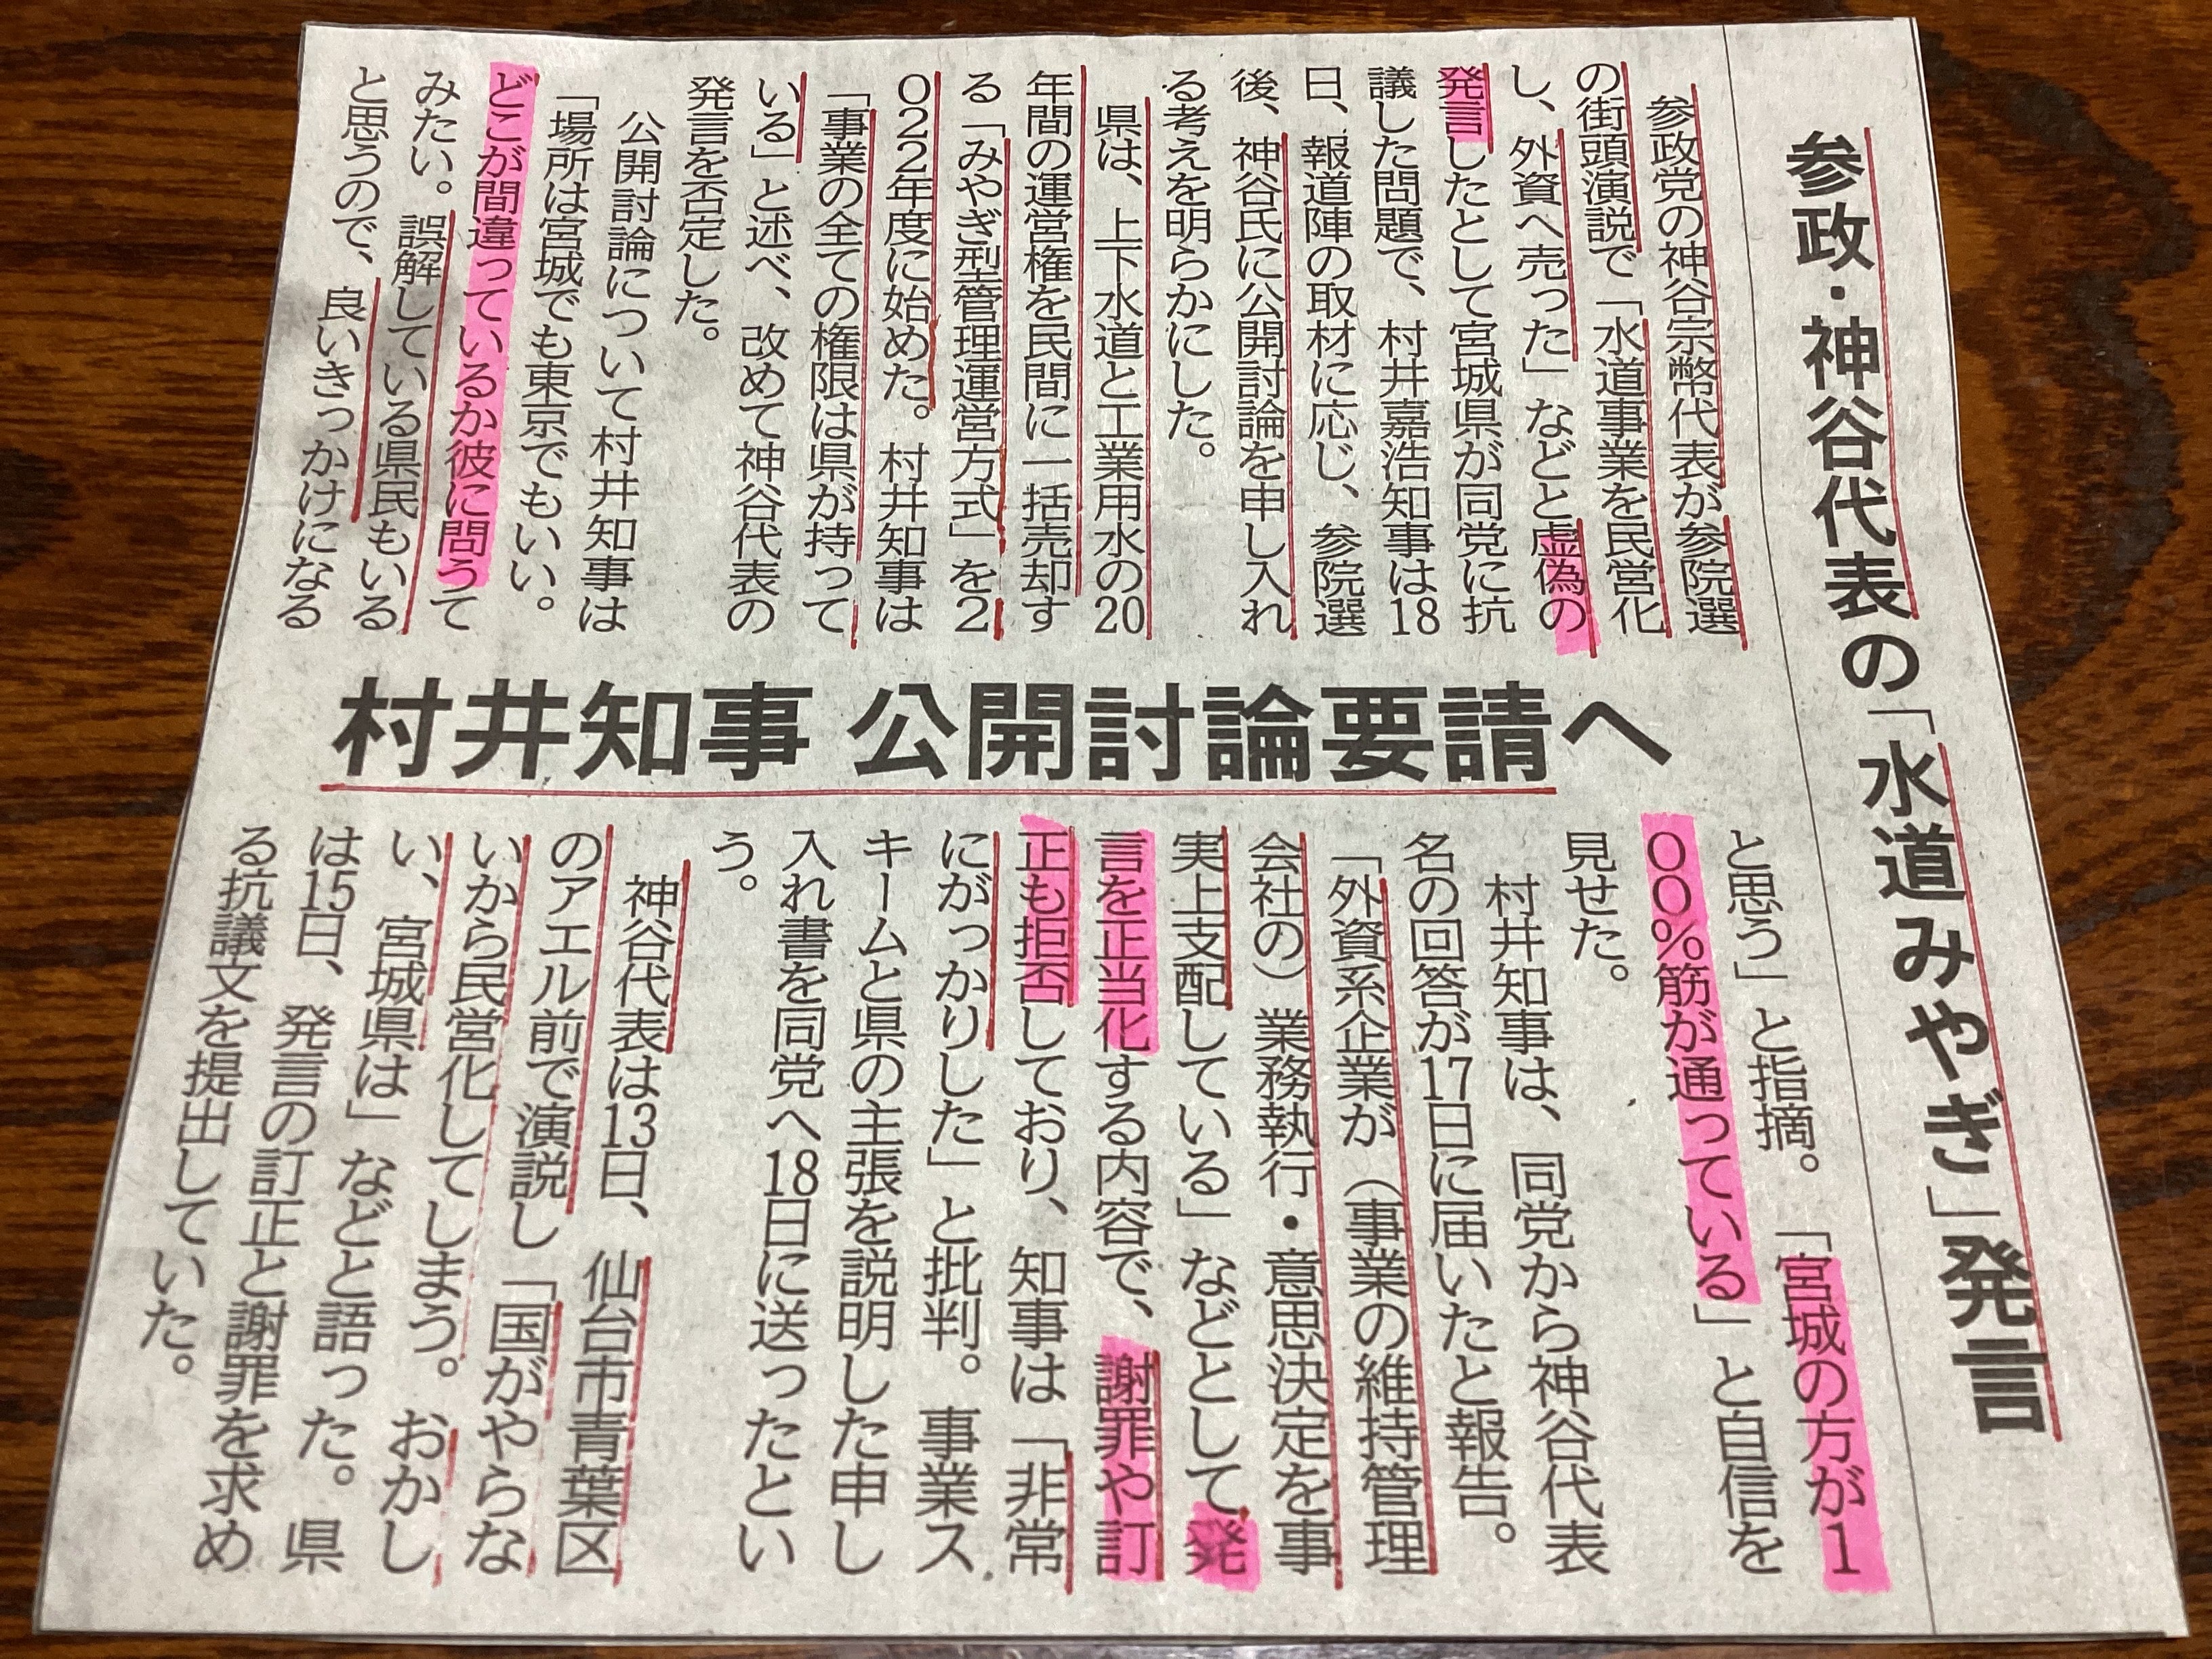 参政・神谷代表の「水道みやぎ」発言
村井知事 公開討論要請へ
参政党の神谷宗幣代表が参院選
の街頭演説で「水道事業を民営化
し、外資へ売った」などと虚偽の
発言したとして宮城県が同党に抗
議した問題で、村井嘉浩知事は18
日、報道陣の取材に応じ、参院選
後、神谷氏に公開討論を申し入れ
る考えを明らかにした。
県は、上下水道と工業用水の20
年間の運営権を民間に一括売却す
る「みやぎ型管理運営方式」を2
022年度に始めた。村井知事は
「事業の全ての権限は県が持って
いる」と述べ、改めて神谷代表の
発言を否定した。
公開討論について村井知事は
「場所は宮城でも東京でもいい。
どこが間違っているか彼に問うて
みたい。誤解している県民もいる
と思うので、良いきっかけになる
と思う」と指摘。「宮城の方が1
00%筋が通っている」と自信を
見せた。
村井知事は、同党から神谷代表
名の回答が17日に届いたと報告。
「外資系企業が（事業の維持管理
会社の）業務執行・意思決定を事
実上支配している」などとして発
言を正当化する内容で、謝罪や訂
正も拒否しており、知事は「非常
にがっかりした」と批判。事業ス
キームと県の主張を説明した申し
入れ書を同党へ18日に送ったとい
う。
神谷代表は13日、仙台市青葉区
のアエル前で演説し「国がやらな
いから民営化してしまう。おかし
い、宮城県は」などと語った。県
は15日、発言の訂正と謝罪を求め
る抗議文を提出していた。